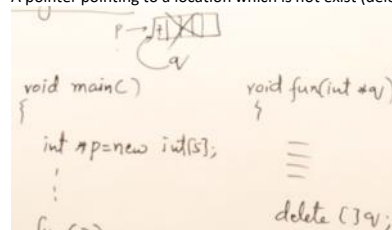 A pointer pointing to a location which is not exist (dele
P →
q
void main()
{
int *p=new int[5];
void fun(int *q)
{
delete []q;